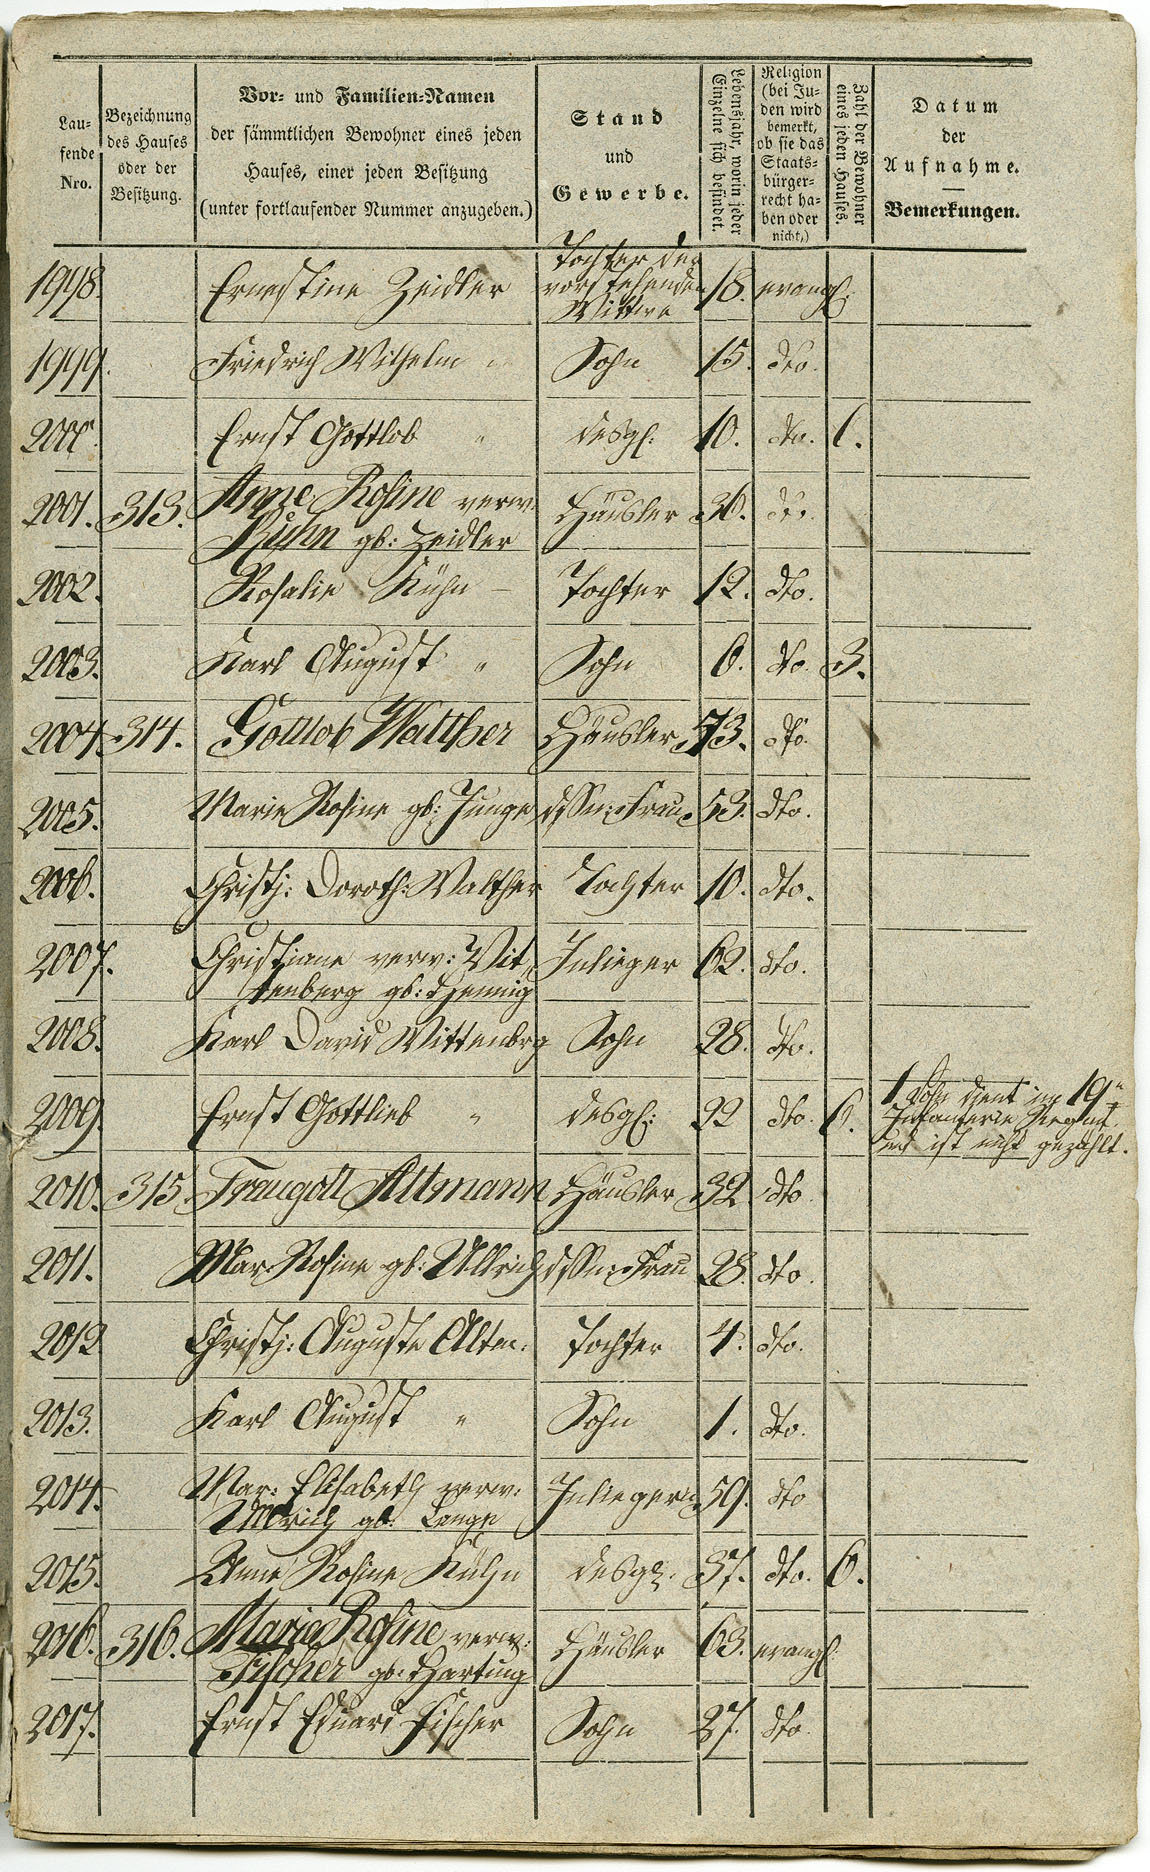 Lau-
fende
Nro.
Bezeichnung
des Hauses
oder der
Besitzung.
Vor- und Familien-Namen
der sämmtlichen Bewohner eines jeden
Hauses, einer jeden Besitzung
(unter fortlaufender Nummer anzugeben.)
Stand
und
Gewerbe.
Lebensjahr, worin jeder
Einzelne sich befindet.
Religion
(bei Ju-
den wird
bemerkt,
ob sie das
Staats-
bürger-
recht ha-
ben oder
nicht,)
Zahl der Bewohner
eines jeden Hauses.
Datum
der
Aufnahme.
Bemerkungen.
Tochter der
1998. Ernestine Zeidler vorstehenden 18. evangl:
Wittwe
1999. Friedrich Wilhelm " Sohn 15. dto.
2000. Ernst Gottlob " desgl: 10. dto. 6.
2001. 313. Anne Rosine verw: Häusler 36. dto.
Kühn gb: Zeidler
2002. Rosalie Kühn – Tochter 12. dto.
2003. Karl August " Sohn 6. dto. 3.
2004. 314. Gottlob Walther Häusler 53. dto.
2005. Marie Rosine gb: Junge dssn: Frau 53. dto.
2006. Christj: Doroth: Walther Tochter 10. dto.
2007. Christiane verw: Wit= Inlieger 62. dto.
tenberg gb: Hennig
2008. Karl David Wittenbrg Sohn 28. dto.
2009. Ernst Gottlieb " desgl: 22 dto. 6. 1 Sohn dient im 19n
Infanterie Regimt.
und ist nicht gezählt.
2010. 315. Traugott Altmann Häusler 32 dto
2011. Mar: Rosine gb: Ullrich dssn: Frau 28. dto.
2012 Christj: Auguste Altm: Tochter 4. dto.
2013. Karl August " Sohn 1. dto.
2014. Mar: Elisabeth verw: Inliegerin 59. dto
Ullrich gb: Lange
2015. Anne Rosine Kühn desgl. 37. dto. 6.
2016. 316. Marie Rosine verw: Häusler 63. evangl:
Fischer gb: Hartung
2017. Ernst Eduard Fischer Sohn 27. dto.